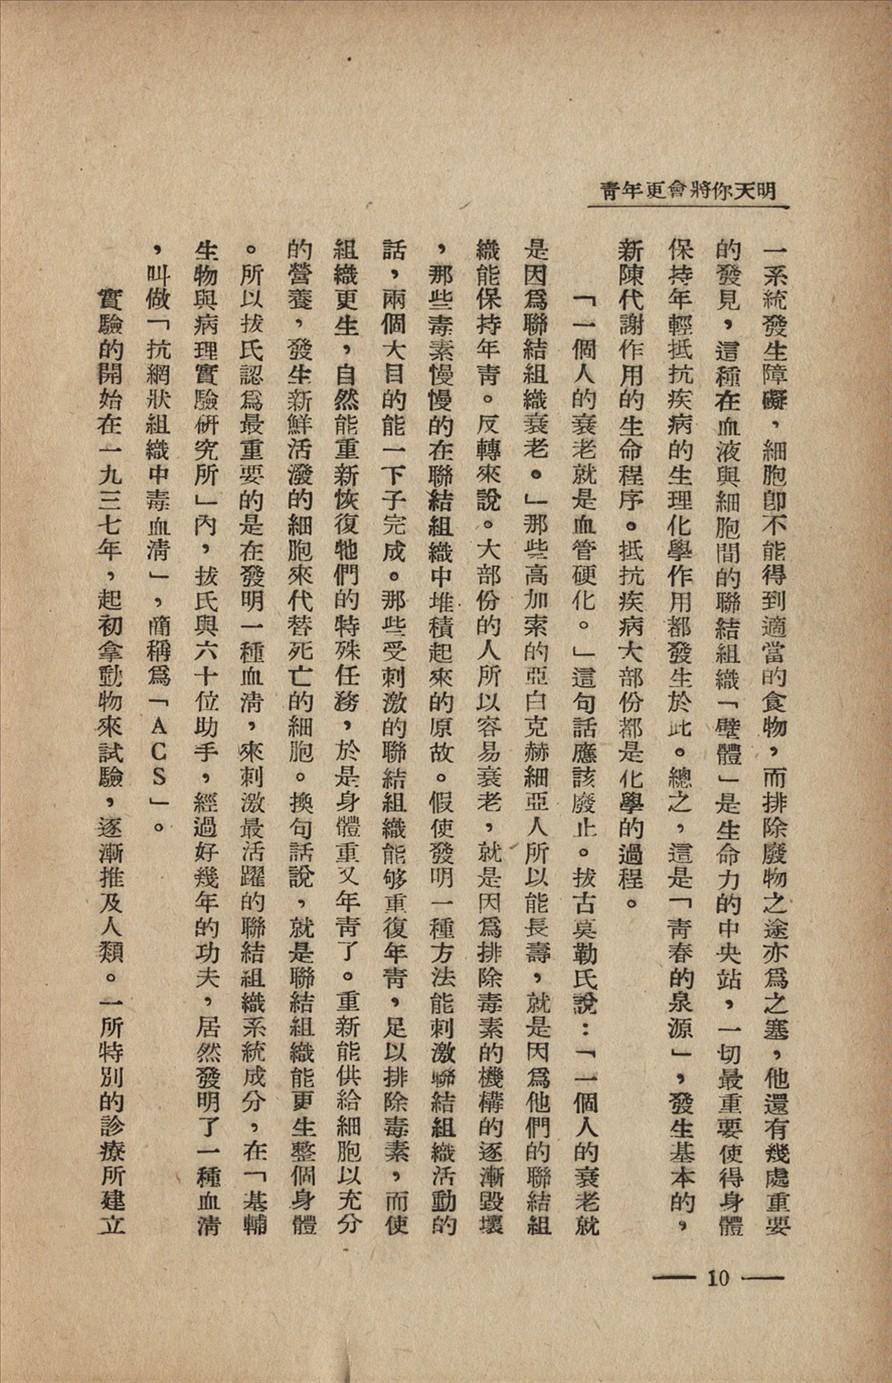 明天你將會更年青
一系統發生障礙，細胞卽不能得到適當的食物，而排除廢物之途亦爲之塞，他還有幾處重要
的發見，這種在血液與細胞間的聯結組織「壁體」是生命力的中央站，一切最重要使得身體
保持年輕抵抗疾病的生理化學作用都發生於此。總之，這是「靑春的泉源」，發生基本的，
新陳代謝作用的生命程序。抵抗疾病大部份都是化學的過程。
「一個人的衰老就是血管硬化。」這句話應該廢止。拔古莫勒氏說：「一個人的衰老就
是因爲聯結組織衰老。」那些高加索的亞白克赫細亞人所以能長壽，就是因爲他們的聯結組
織能保持年靑。反轉來說。大部份的人所以容易衰老，就是因爲排除毒素的機構的逐漸毀壞
，那些毒素慢慢的在聯結組織中堆積起來的原故。假使發明一種方法能刺激聯結組織活動的
話，兩個大目的能一下子完成。那些受刺激的聯結組織能够重復年靑，足以排除毒素，而使
組織更生，自然能重新恢復牠們的特殊任務，於是身體重又年靑了。重新能供給細胞以充分
的營養，發生新鮮活潑的細胞來代替死亡的細胞。換句話說，就是聯結組織能更生整個身體
。所以拔氏認爲最重要的是在發明一種血淸，來刺激最活躍的聯結組織系統成分，在「基輔
生物與病理實驗研究所」內，拔氏與六十位助手，經過好幾年的功夫，居然發明了一種血淸
，叫做「抗網狀組織中毒血淸」，簡稱爲「ACS」。
實驗的開始在一九三七年，起初拿動物來試驗，逐漸推及人類。一所特別的診療所建立
— 10 —